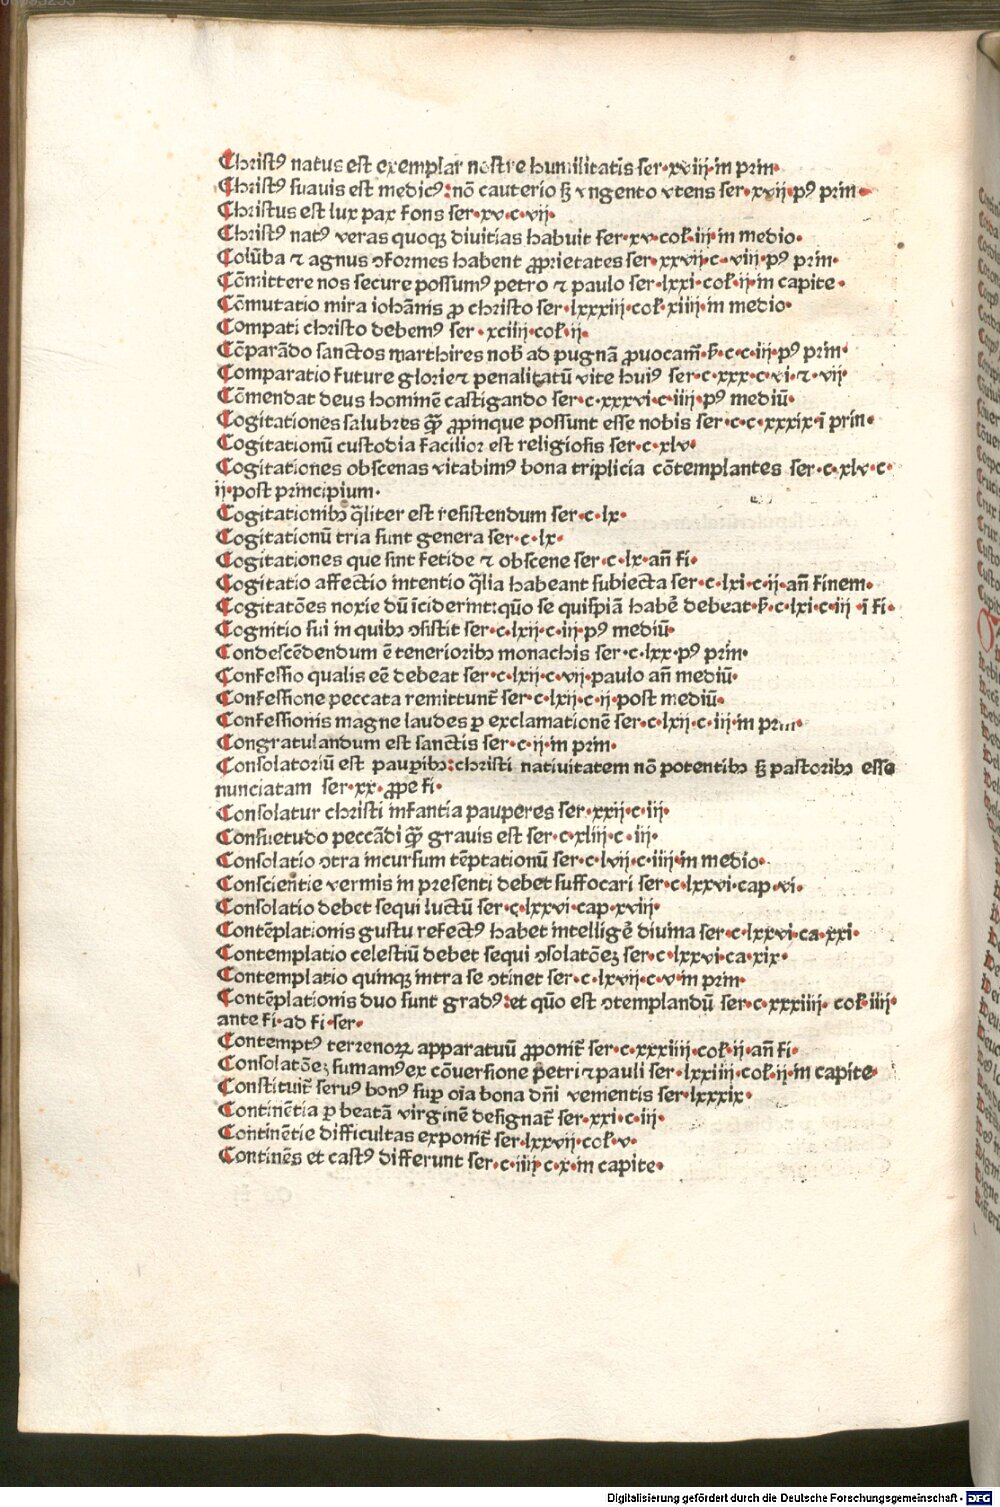 Christꝰ natus est exemplar nostre humilitatis ser·xviij·in prin·
Christꝰ suauis est medicꝰ: nō cauterio sꝫ vngento vtens ser·xvij·pꝰ prin·
Christus est lux pax fons ser·xv·c·vij·
Christꝰ natꝰ veras quoqꝫ diuitias habuit ser·xv·col·iij·in medio·
Colūba ⁊ agnus ꝯformes habent ꝓprietates ser·xxvij·c·viij·pꝰ prin·
Cōmittere nos secure possumꝰ petro ⁊ paulo ser·lxxi·col·ij·in capite·
Cōmutatio mira iohānis ꝓ christo ser·lxxxiij·col·xiiij·in medio·
Compati christo debemꝰ ser·xciiij·col·ij·
Cōparādo sanctos marthires nob̄ ad pugnā ꝓuocam̄·ẜ·c·c·iij·pꝰ prin·
Comparatio future glorie⁊ penalitatū vite huiꝰ ser·c·xxx·c·vi·⁊·vij·
Cōmendat deus hominē castigando ser·c·xxxvi·c·iiij·pꝰ mediū·
Cogitationes salubres qꝫ̄ ꝓpinque possunt esse nobis ser·c·c·xxxix·ī prin·
Cogitationū custodia facilior est religiosis ser·c·xlv·
Cogitationes obscenas vitabimꝰ bona triplicia cōtemplantes ser·c·xlv·c·
ij·post principium·
Cogitationibꝫ q̄liter est resistendum ser·c·lx·
Cogitationū tria sunt genera ser·c·lx·
Cogitationes que sint fetide ⁊ obscene ser·c·lx·an̄ fi·
Cogitatio affectio intentio q̄lia habeant subiecta ser·c·lxi·c·ij·an̄ finem·
Cogitatōes noxie dū īciderint: quo͞ se quispiā habē debeat·ẜ·c·lxi·c·iij·ī fi·
Cognitio sui in quibꝫ ꝯsistit ser·c·lxij·c·iij·pꝰ mediū·
Condescēdendum ē tenerioribꝫ monachis ser·c·lxx·pꝰ prin·
Confessio qualis eē debeat ser·c·lxij·c·vij·paulo an̄ mediū·
Confessione peccata remittunt̄ ser·c·lxij·c·ij·post mediū·
Confessionis magne laudes ꝑ exclamationē ser·c·lxij·c·iij·in prin·
Congratulandum est sanctis ser·c·ij·in prin·
Consolatoriū est pauꝑibꝫ: christi natiuitatem nō potentibꝫ sꝫ pastoribꝫ esse
nunciatam ser·xx·ꝓpe fi·
Consolatur christi infantia pauperes ser·xxij·c·iij·
Consuetudo peccādi qꝫ̄ grauis est ser·c·xliij·c·iij·
Consolatio ꝯtra incursum tēptationū ser·c·lvij·c·iiij·in medio·
Conscientie vermis in presenti debet suffocari ser·c·lxxvi·cap·vi·
Consolatio debet sequi luctū ser·c·lxxvi·cap·xviij·
Contēplationis gustu refectꝰ habet intelligē diuina ser·c·lxxvi·ca·xxi·
Contemplatio celestiū debet sequi ꝯsolatōeꝫ ser·c·lxxvi·ca·xix·
Contemplatio quinqꝫ intra se ꝯtinet ser·c·lxvij·c·v·in prin·
Contēplationis duo sunt gradꝰ: et quo͞ est ꝯtemplandū ser·c·xxxiiij·col·iiij·
ante fi·ad fi·ser·
Contemptꝰ terrenoꝝ apparatuū ꝓponit̄ ser·c·xxxiiij·col·ij·an̄ fi·
Consolatōeꝫ sumamꝰ ex cōuersione petri ⁊ pauli ser·lxxiiij·col·ij·in capite·
Constituit̄ seruꝰ bonꝰ suꝑ oīa bona dn̄i vementis ser·lxxxix·
Continētia ꝑ beatā virginē designat̄ ser·xxi·c·iij·
Continētie difficultas exponit̄ ser·lxxvij·col·v·
Continēs et castꝰ differunt ser·c·iiij·c·x·in capite·
Digitalisierung gefördert durch die Deutsche Forschungsgemeinschaft - DFG